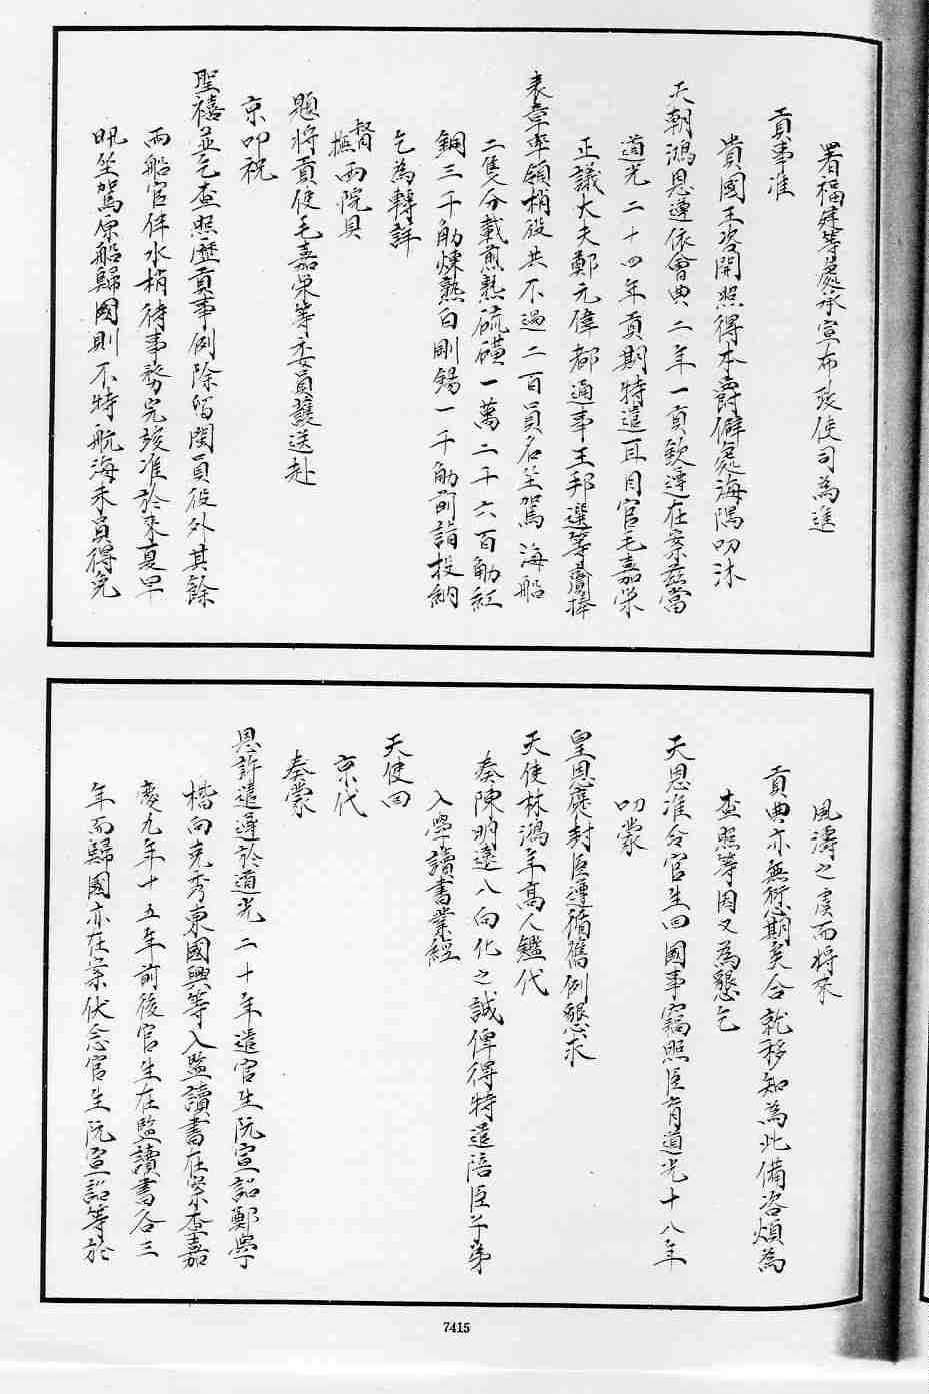 署福建等處承宣布政使司為進
貢事准
貴國王咨開照得本爵僻處海隅叨沐
天朝鴻恩遵依會典二年一貢欽遵在案茲當
道光二十四年貢期特遣耳目官毛嘉荣
正議大夫鄭元偉都通事王邦選等賫捧
表章率領梢役共不過二百員名坐駕海船
二隻分載煎熟硫磺一萬二千六百觔紅
銅三千觔煉熟白剛錫一千觔前詣投納
乞為轉詳
督
撫兩院具
題將貢使毛嘉荣等委員護送赴
京叩祝
聖禧並乞查照歷貢事例除留閩員役外其餘
兩船官伴水梢待事務完竣准於來夏早
汛坐駕原船歸國則不特航海末員得免
風濤之虞而將來
貢典亦無愆期矣合就移知為此備咨煩為
查照等因又為懇乞
天恩准令官生回國事竊照臣育道光十八年
叨蒙
皇恩襃封臣遵循舊例懇求
天使林鴻年高人鑑代
奏陳昀遠八向化之誠俾得特遣陪臣子弟
入學讀書業經
天使回
京代
奏蒙
恩許遣遵於道光二十年遣官生阮宣詔鄭學
楷向克秀東國興等入監讀書在案查嘉
慶九年十五年前後官生在監讀書合三
年而歸國亦在案伏念官生阮宣詔等於
7415